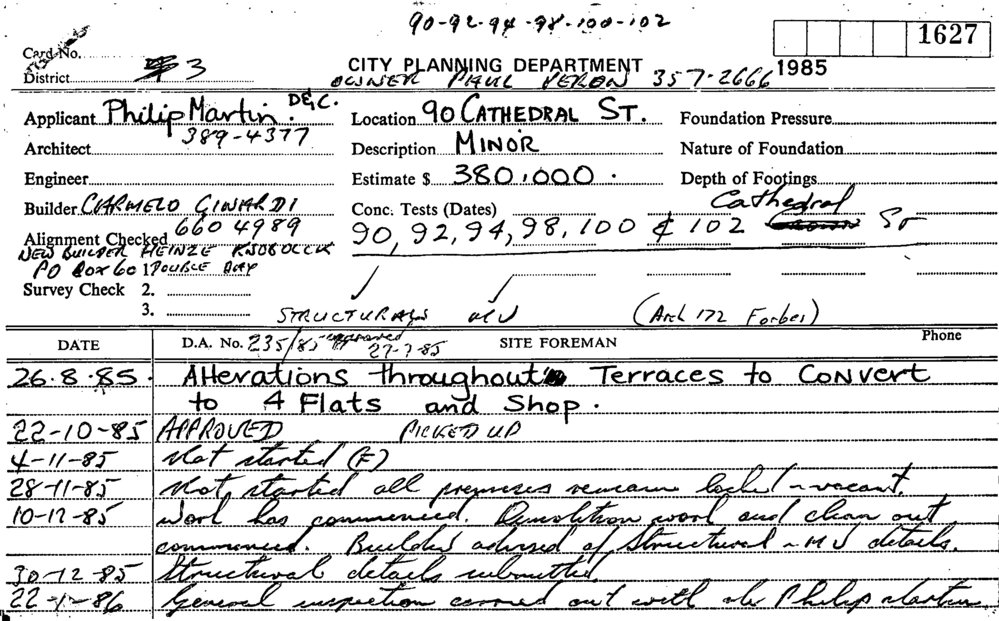 90-92-94-98-100-102
1627
Card No.
District 3
CITY PLANNING DEPARTMENT 1985
OWNER PAUL 357-2666
Applicant Philip Martin D&C.
Location 90 CATHEDRAL ST.
Foundation Pressure
Architect 389-4377
Description MINOR
Nature of Foundation
Engineer
Estimate $ 380,000.
Depth of Footings
Builder CARMELO
Conc. Tests (Dates)
Cathedral
Alignment Checked 660 4989
90, 92, 94, 98, 100 & 102 St
NEW BUILDER HEINZE
PO BOX 60 1. DOUBLE BAY
Survey Check 2.
3.
STRUCTURALS MV (Arch 172 Forbes)
DATE
D.A. No. 235/85 approved 27-7-85
SITE FOREMAN
Phone
26.8.85. Alterations throughout Terraces to Convert
to 4 Flats and Shop.
22-10-85 APPROVED PICKED UP
4-11-85 Not started (F)
28-11-85 Not started all premises remain locked - vacant.
10-12-85 Work has commenced. Demolition work and clean out
commenced. Builder advised of Structural - MV details.
30-12-85 Structural details submitted
22-1-86 General inspection carried out with Mr Philip Martin